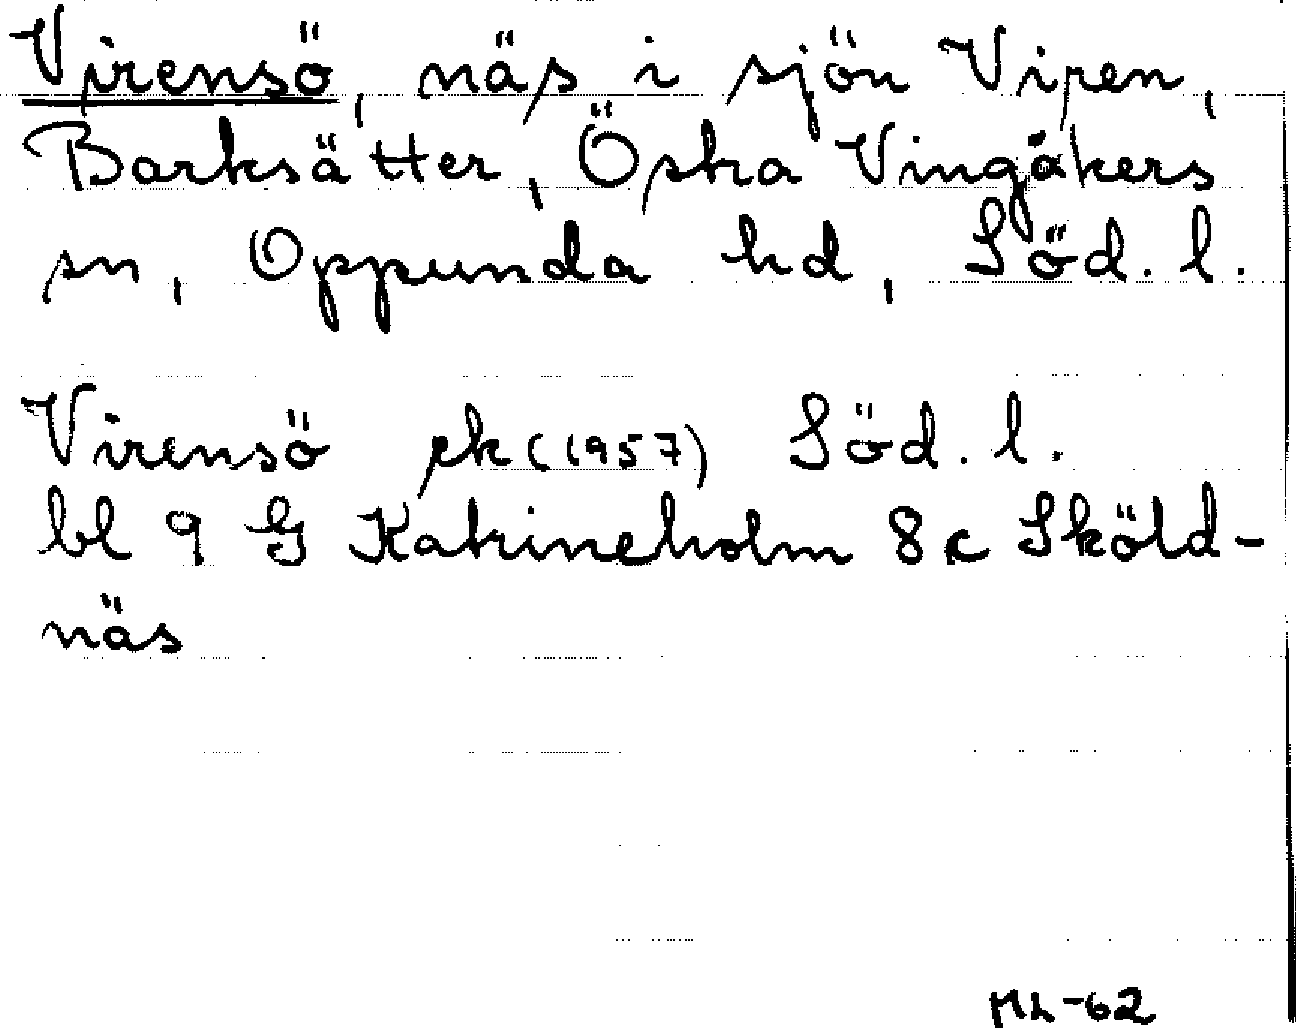 Virensö, näs i sjön Viren,
Barksätter, Östra Vingåkers
sn, Oppunda hd, Söd. l.
Virensö ek (1957) Söd. l.
bl 9 G Katrineholm 8 c Sköld-
näs
ML-62